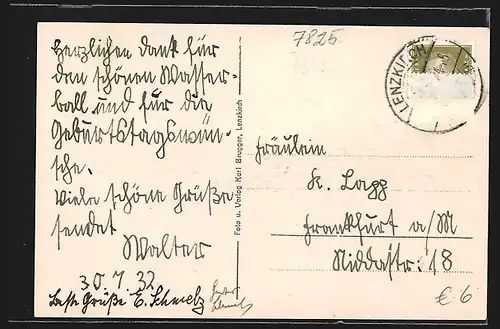 7825
LENZKIRCH
Herzlichen Dank für
den schönen Wasser-
ball und für die
Geburtstagswün-
sche.
Viele schöne Grüße
sendet
Walter
30.7.32
Beste Grüße E. Schmelz
Foto u. Verlag Karl Brugger, Lenzkirch
Fräulein
K. Lapp
Frankfurt a/M
Niddastr. 18
€ 6